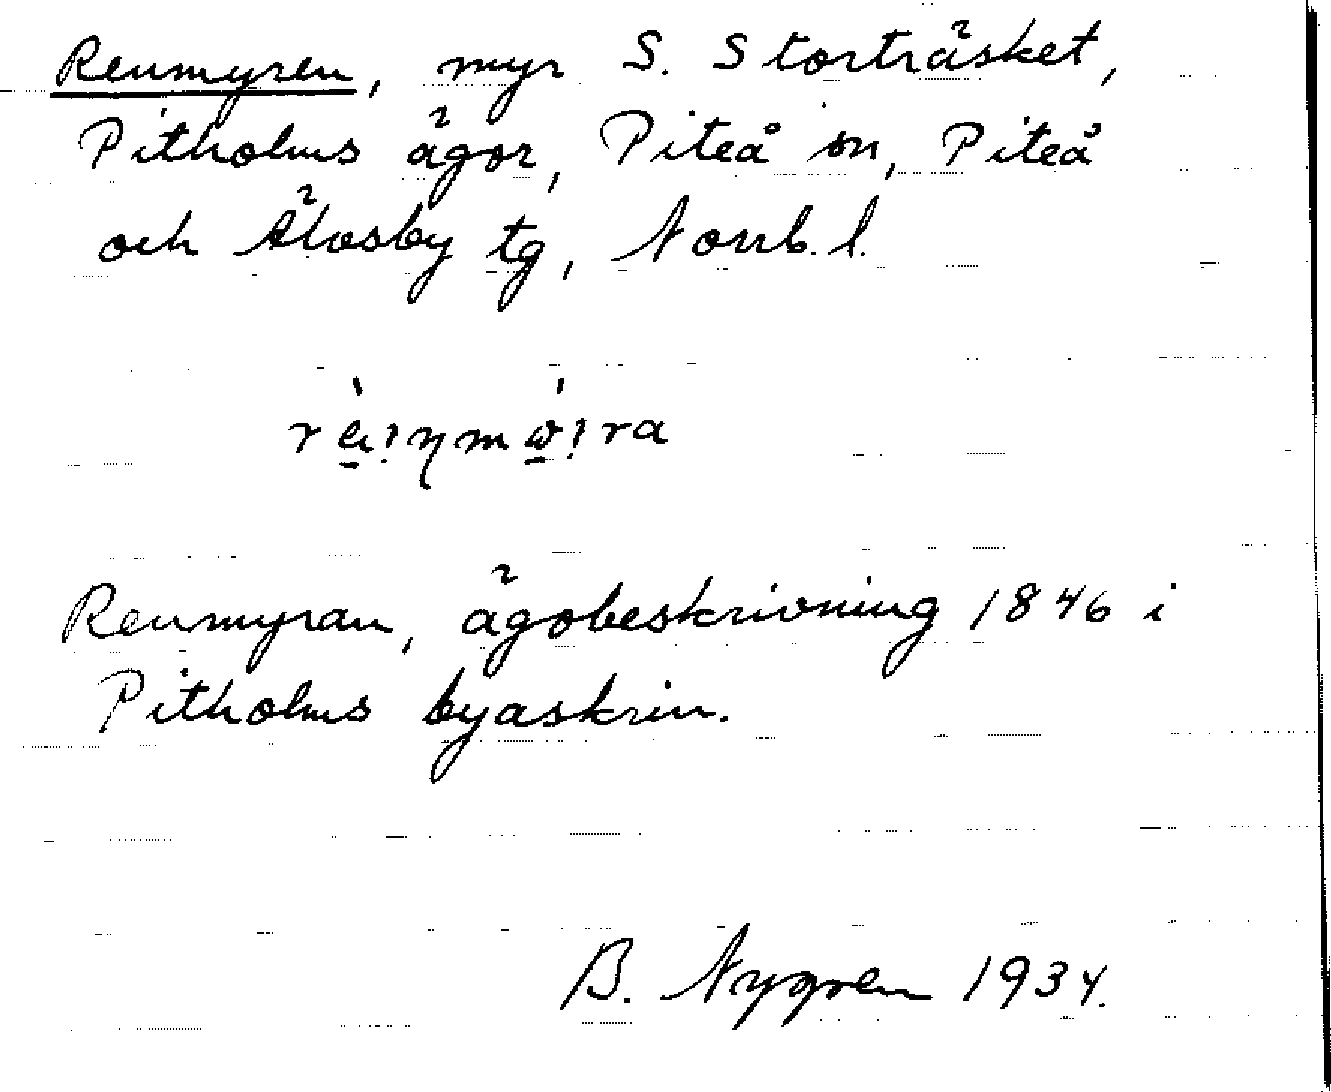 Renmyren, myr S. Storträsket,
Pitholms ägor, Piteå sn, Piteå
och Älvsby tg, Norrb. l.
Renmyran, ägobeskrivning 1846 i
Pitholms byaskrin.
B. Nygren 1934.